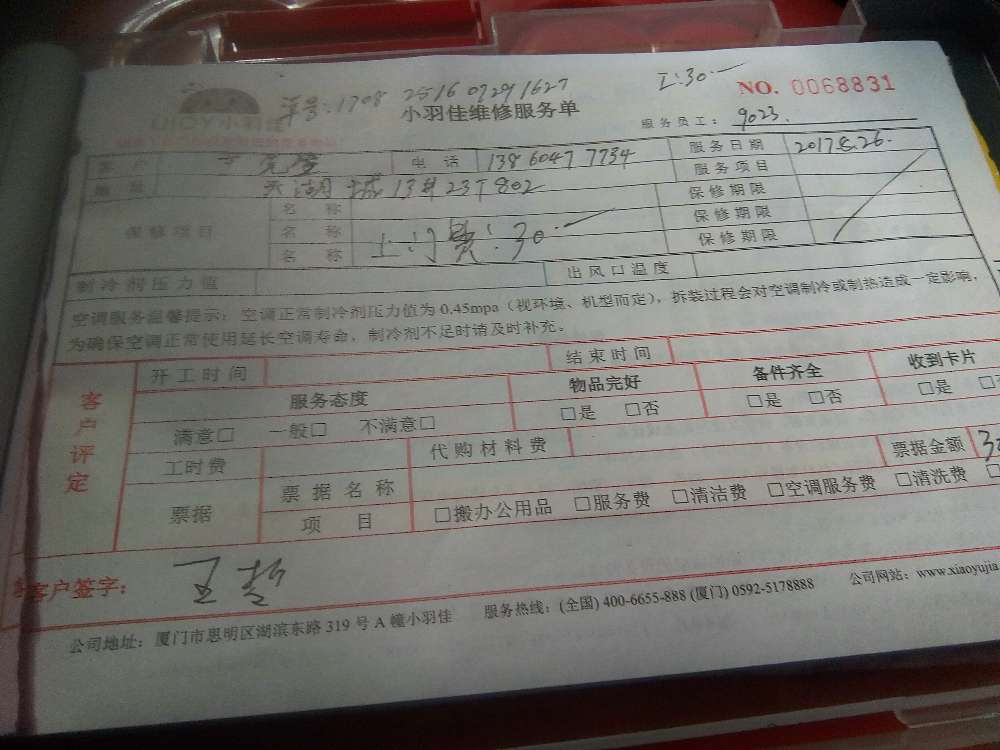 工:30.一
NO. 0068831
单号:1708 2516 07291627
小羽佳
小羽佳维修服务单
服务员工: 9023.
客户 电话 13860477734 服务日期 2017.8.26.
地址 天湖城13#23T802 服务项目
保修项目 名称 保修期限
名称 上门费:30.一 保修期限
名称 保修期限
制冷剂压力值 出风口温度
空调服务温馨提示:空调正常制冷剂压力值为0.45mpa(视环境、机型而定),拆装过程会对空调制冷或制热造成一定影响,
为确保空调正常使用延长空调寿命,制冷剂不足时请及时补充。
客户评定
开工时间 结束时间
服务态度 物品完好 备件齐全 收到卡片
满意□ 一般□ 不满意□ □是 □否 □是 □否 □是
工时费 代购材料费 票据金额
票据 票据名称
项目 □搬办公用品 □服务费 □清洁费 □空调服务费 □清洗费
客户签字:
公司地址:厦门市思明区湖滨东路319号A幢小羽佳 服务热线:(全国)400-6655-888 (厦门)0592-5178888 公司网站:www.xiaoyujia